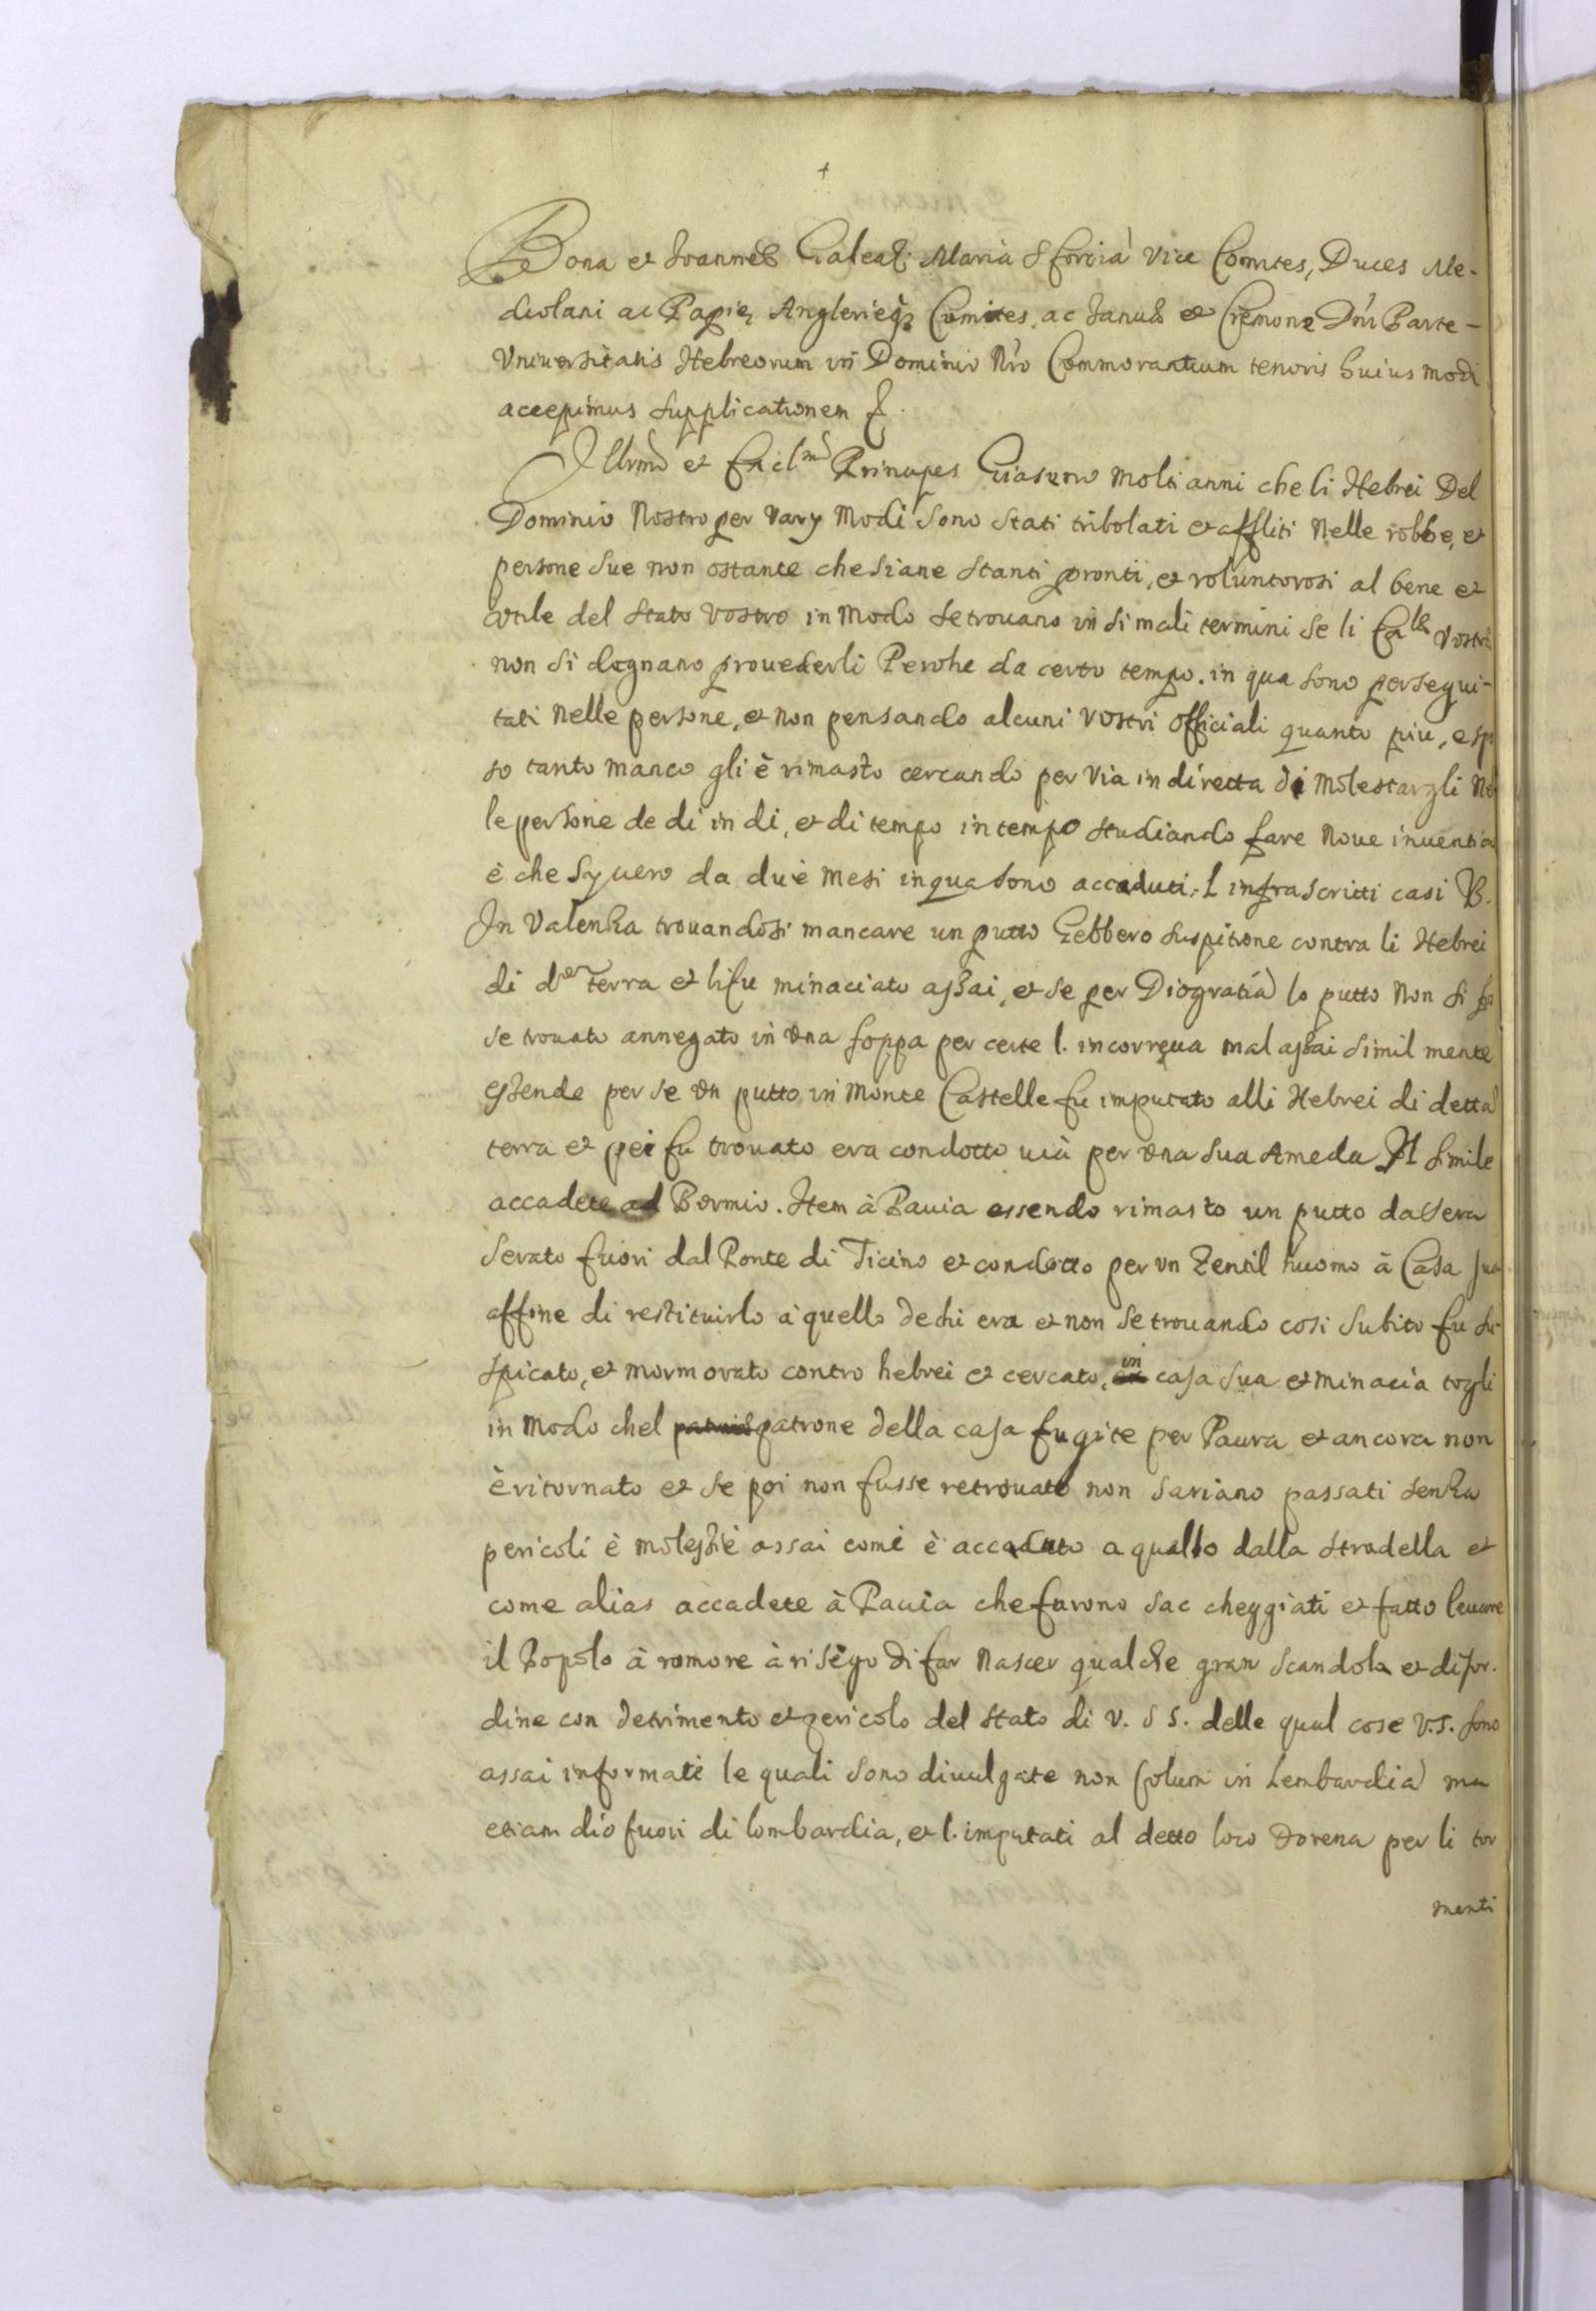 +
Bona et Ioannes Galeaz Maria Sforcia Vice Comites, Duces Me-
diolani ac Papię Anglerięq3 Comites, ac Ianuę et Cremonę Dni Parte
Vniuersitatis Hebreorum in Dominio Nro Commorantium tenoris huius modi
accepimus supplicationem
Illrmi et Eccl.mi Principes Gia sono molti anni che li Hebrei Del
Dominio Nostro per varij Modi sono stati tribolati et affliti Nelle robbe, et
persone sue non ostante che siane stanti pronti, et voluntorosi al bene et
vtile del Stato vostro in Modo se trouano in si mali termini se li vostre
non si degnano prouederli Perche da certo tempo in qua sono persegui-
tati Nelle persone, et non pensando alcuni vostri officiali quanto piu, esp
so tanto manco gli è rimasto cercando per via indiretta di Molestargli Nel
le persone de di in di, et di tempo in tempo studiando fare Noue inuentio
è che sy vero da duè Mesi in qua sono accaduti l infrascritti casi
In Valenza trouandosi mancare un putto Hebbero suspitione contra li Hebrei
di d.a terra et li fu minaciato assai, et se per Diogratia lo putto Non si fo
se trouato annegato in vna foppa per certe l. incorreua mal assai simil mente
essende per se vn putto in Monte Castelle fu imputato alli Hebrei di detta
terra et poi fu trouato era condotto uià per vna sua Ameda Il simile
accadete ad Bormio. Item à Pauia essendo rimasto un putto da sera
serato fuori dal Ponte di Ticino et condotto per vn Zentil huomo à Casa sua
affine di restituirlo à quello de chi era et non se trouando così subito fu su-
spicato, et mormorato contro hebrei et cercato, in casa sua et minacia togli
in Modo chel patrone della casa fugite per Paura et ancora non
è ritornato et se poi non fusse retrouato non sariano passati senza
pericoli è molestie assai come è accaduto a quello dalla stradella et
come alias accadete à Pauia che furono sac cheggiati et fatto leuare
il Popolo à romore à risego di far Nascer qualche gran scandola et disor-
dine con detrimento et pericolo del stato di V. S S. delle qual cose V. S. sono
assai informate le quali sono diuulgate non solum in Lombardia ma
etiam dio fuori di lombardia, et l. imputati al detto loco dorena per li tor
menti